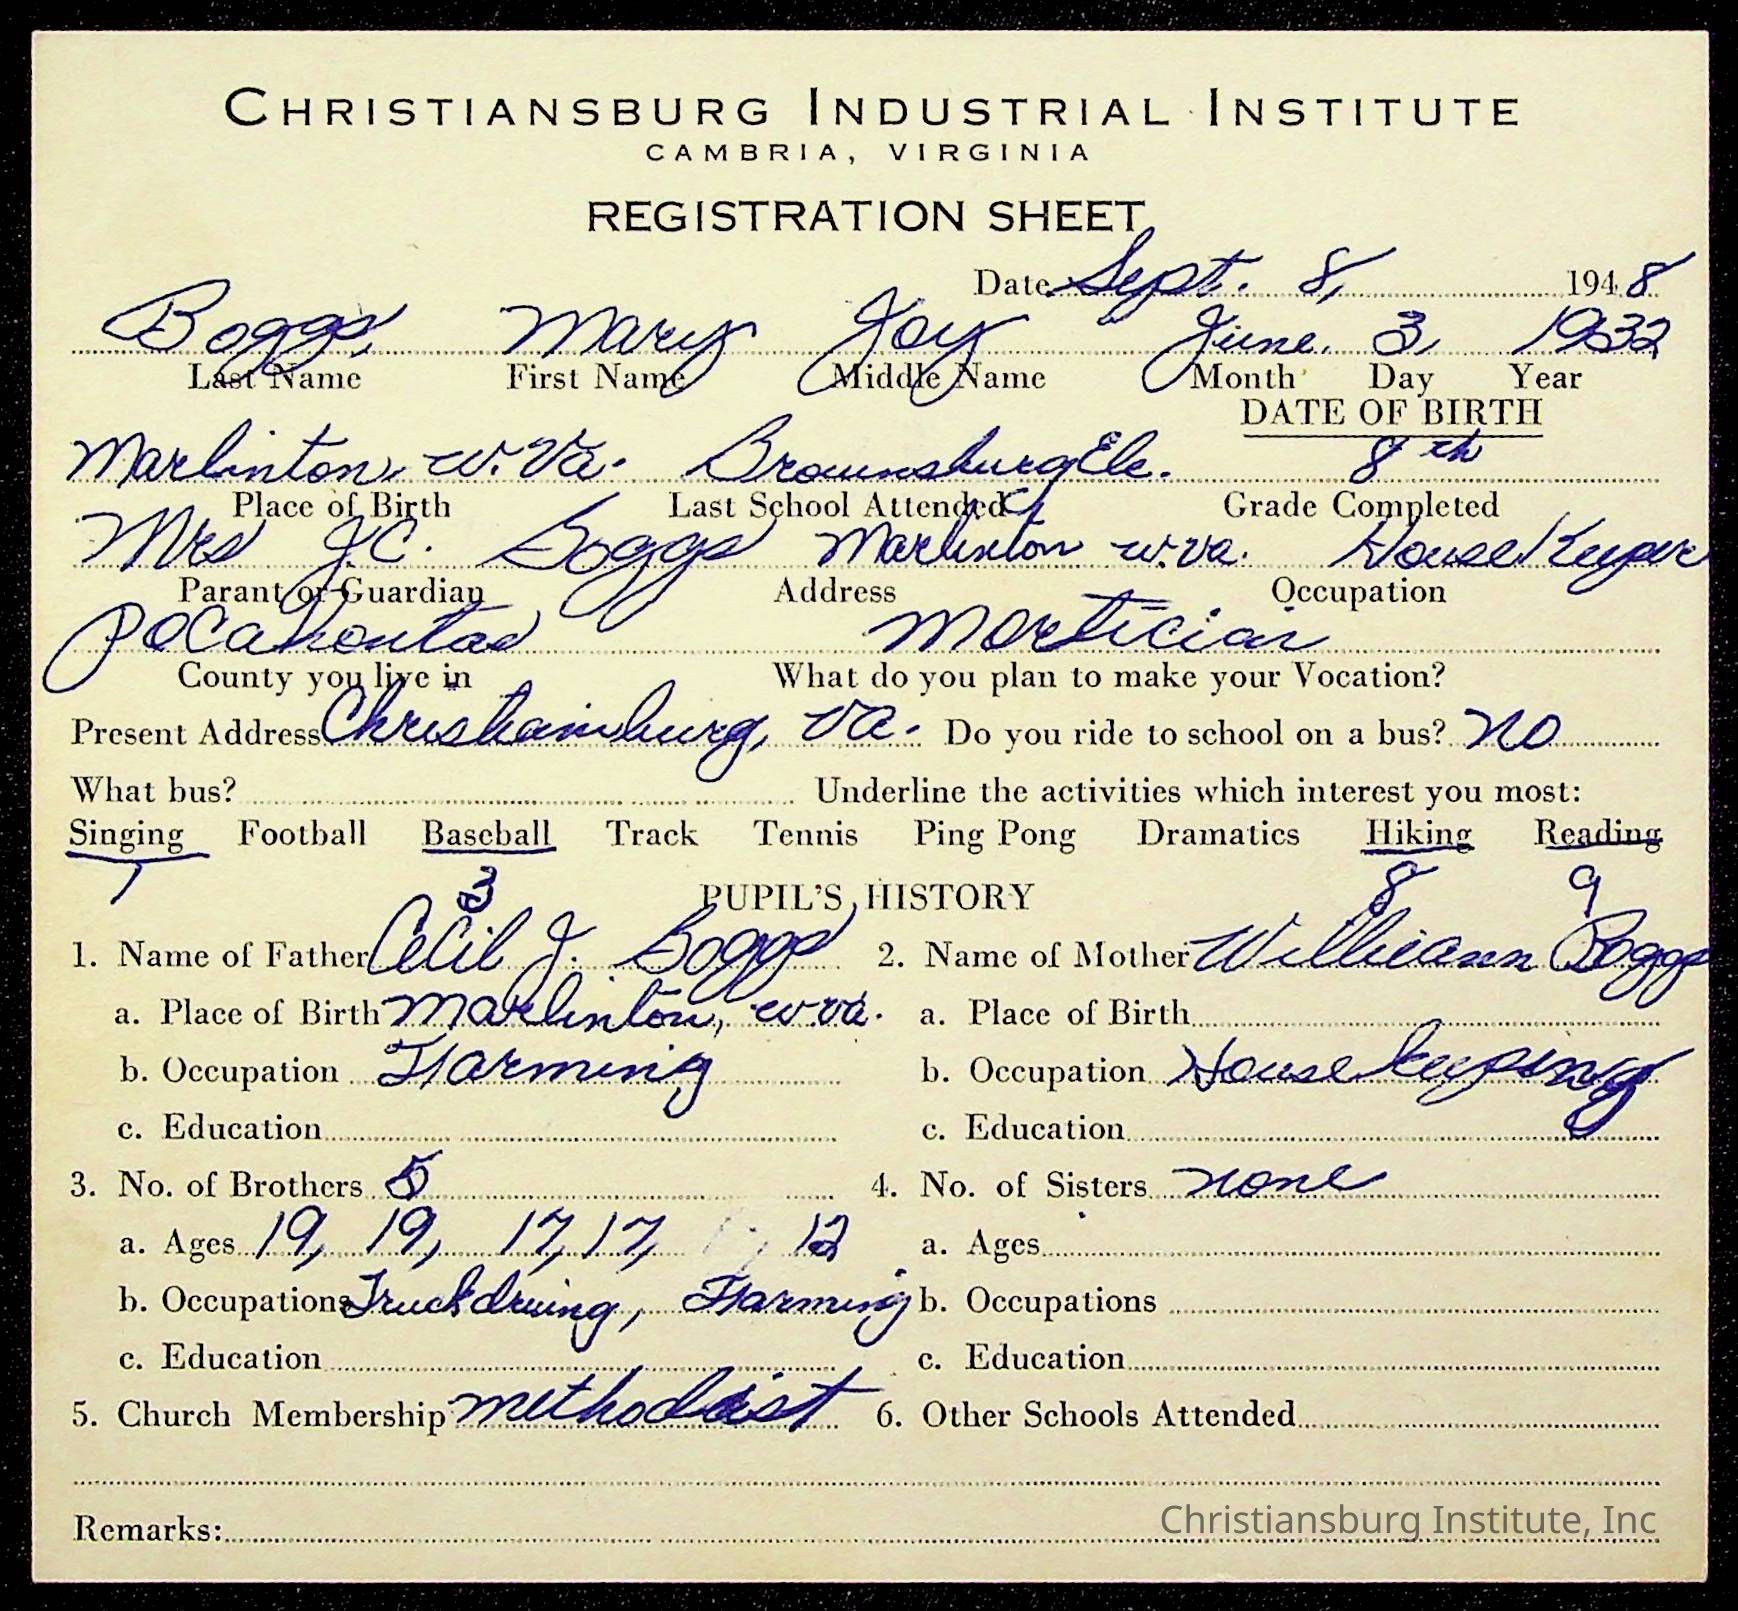 CHRISTIANSBURG INDUSTRIAL INSTITUTE
CAMBRIA, VIRGINIA
REGISTRATION SHEET
Date Sept. 8, 1948
Boggs, Mary Joy June. 3, 1932
Last Name First Name Middle Name Month Day Year
DATE OF BIRTH
Marlinton, W. Va. Brownsburg Ele. 8th
Place of Birth Last School Attended Grade Completed
Mrs J.C. Boggs Marlinton W. Va. House Keeper
Parant or Guardian Address Occupation
Pocahontas Mortician
County you live in What do you plan to make your Vocation?
Present Address Christiansburg, Va. Do you ride to school on a bus? No
What bus? Underline the activities which interest you most:
Singing Football Baseball Track Tennis Ping Pong Dramatics Hiking Reading
1 3 8 9
PUPIL'S HISTORY
1. Name of Father Cecil J. Boggs 2. Name of Mother Willieann Boggs
a. Place of Birth Marlinton, W Va. a. Place of Birth
b. Occupation Farming b. Occupation House keeping
c. Education c. Education
3. No. of Brothers 5 4. No. of Sisters none
a. Ages 19, 19, 17, 17, 12 a. Ages
b. Occupations Truckdriving, Farming b. Occupations
c. Education c. Education
5. Church Membership methodist 6. Other Schools Attended
Remarks:
Christiansburg Institute, Inc